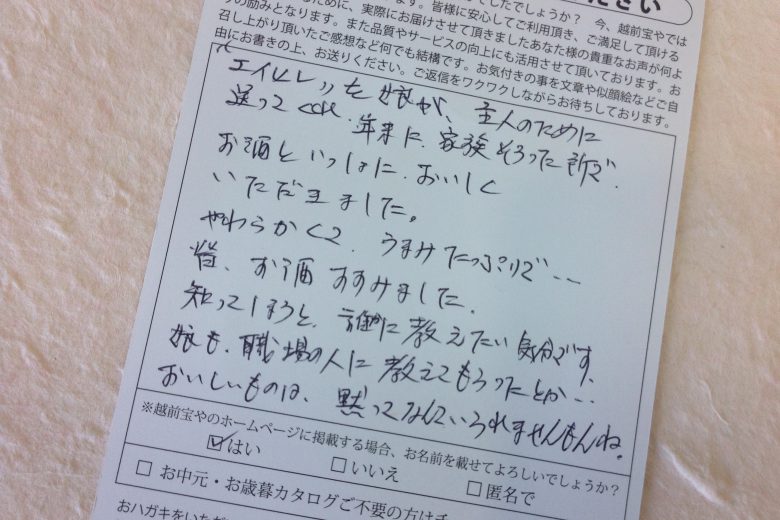 ださい
でしたでしょうか? 今、越前宝やでは
るために、実際にお届けさせて頂きましたあなた様の貴重なお声が何よ
りの励みとなります。また品質やサービスの向上にも活用させて頂いております。お
召し上がり頂いたご感想など何でも結構です。お気付きの事を文章や似顔絵などご自
由にお書きの上、お送りください。ご返信をワクワクしながらお待ちしております。
エイヒレッを娘が、主人のために
送ってくれ、年末に、家族そろった所で、
お酒といっしょに、おいしく
いただきました。
やわらかくて、うまみたっぷりで…
皆、お酒すすみました、
知ってしまうと、誰かに教えたい気分です、
娘も、職場の人に教えてもらったとか…
おいしいものは、黙ってなんていられませんもんね。
※越前宝やのホームページに掲載する場合、お名前を載せてよろしいでしょうか?
☑はい □いいえ □匿名で
□ お中元・お歳暮カタログご不要の方は
おハガキをいただ